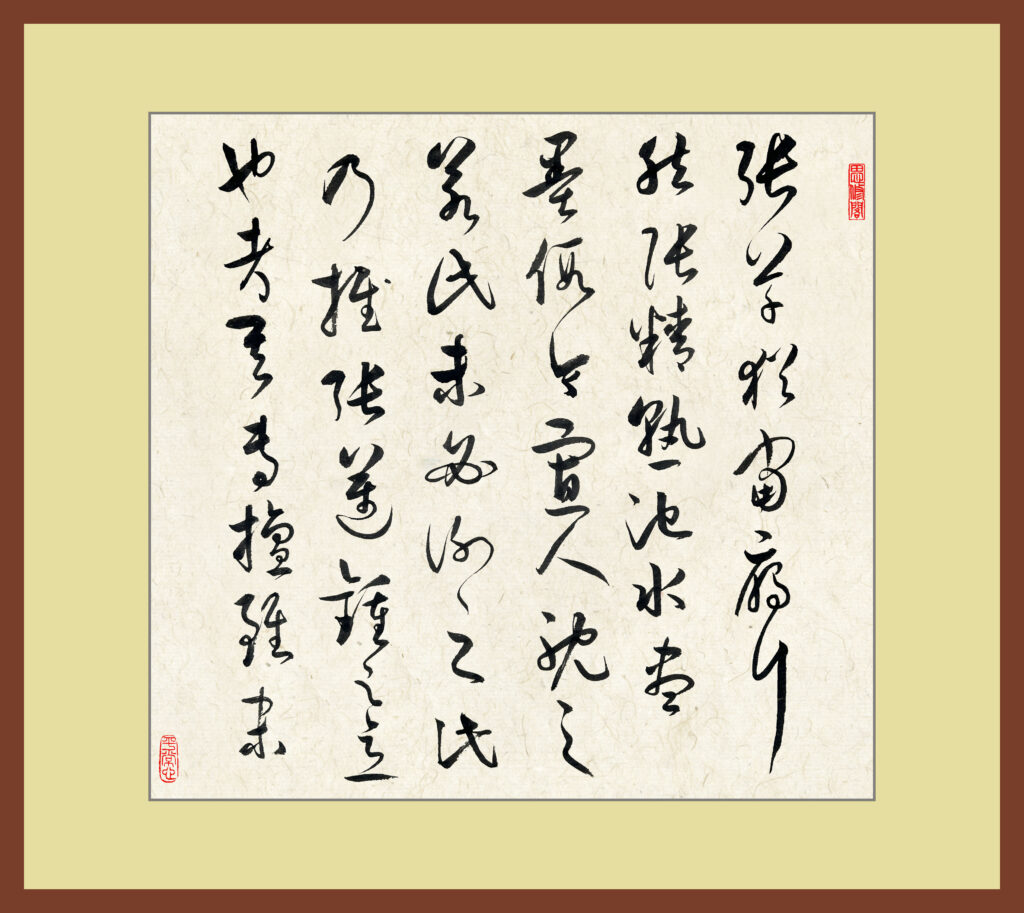 思修閣
張草猶當雁行
然張精熟池水盡
墨假令寡人耽之
若此未必謝之此
乃推張邁鍾之意
也考其專擅雖未
平常心